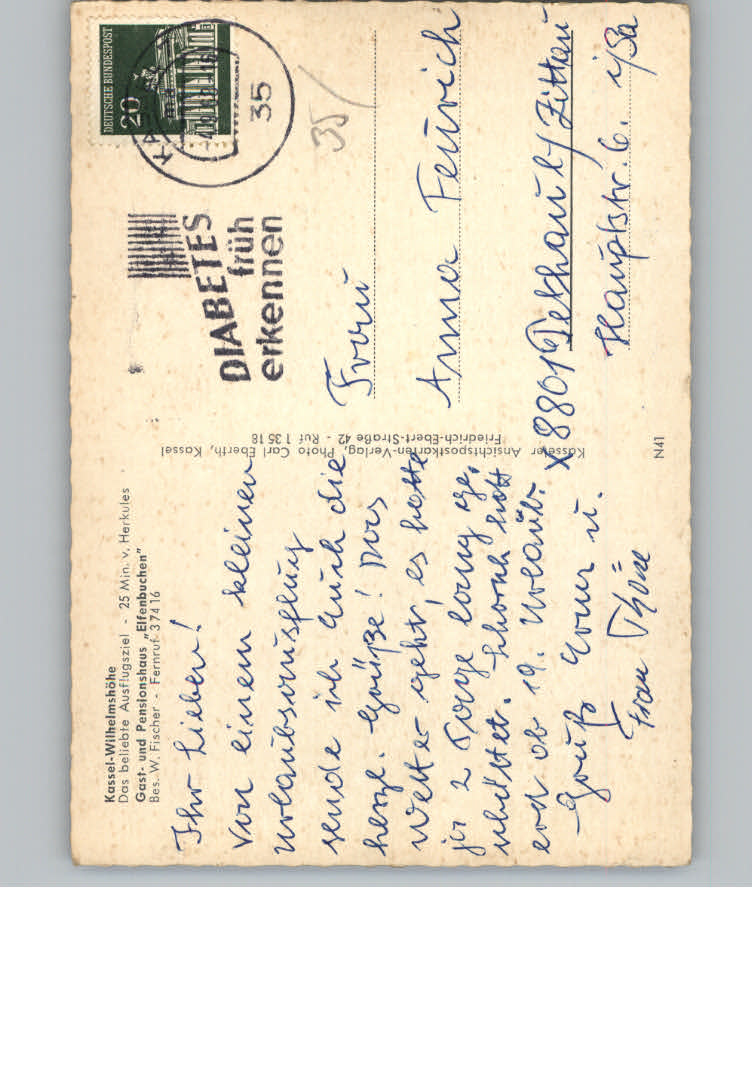 Kassel-Wilhelmshöhe
Das beliebte Ausflugsziel - 25 Min. v. Herkules
Gast- und Pensionshaus „Elfenbuchen"
Bes. W. Fischer - Fernruf 3 74 16
Ihr Lieben!
Von einem kleinen
Urlaubsausflug
sende ich Euch die
herzl. Grüße! Das
Wetter geht, es hatte
ja 2 Tage lang ge-
schüttet. Schorsch hat
erst ab 19. Urlaub.
Gruß Eour u.
Frau
Kasseler Ansichtspostkarten-Verlag, Photo Carl Eberth, Kassel
Friedrich-Ebert-Straße 42 - Ruf 1 35 18
N41
DEUTSCHE BUNDESPOST
20
35
DIABETES
früh
erkennen
35/
Frau
Anna Feurich
X8801 Pethau b/ Zittau
Hauptstr. 6. i/Sa